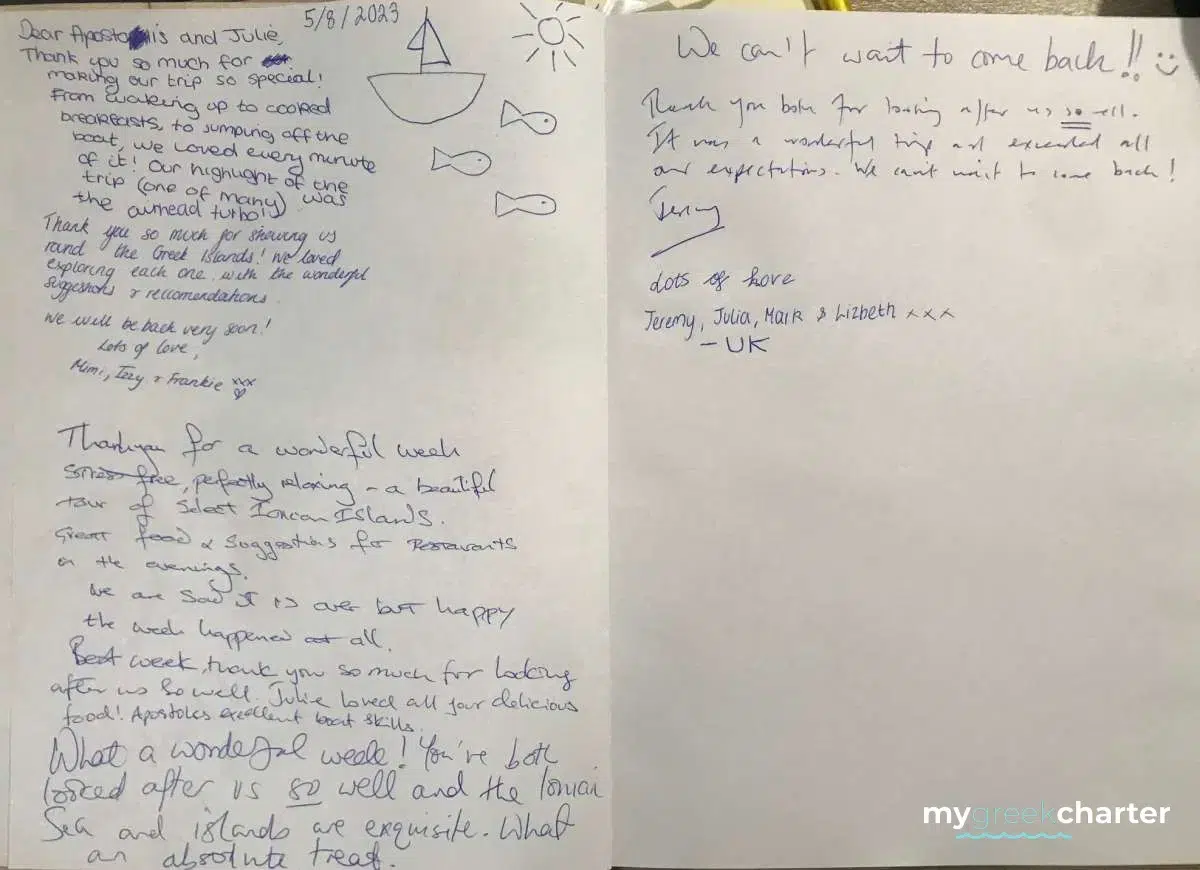 5/8/2023
Dear Apostolis and Julie,
Thank you so much for
making our trip so special!
From waking up to cooked
breakfasts, to jumping off the
boat, we loved every minute
of it! Our highlight of the
trip (one of many) was
the airhead turbo!
Thank you so much for showing us
round the Greek Islands! We loved
exploring each one with the wonderful
suggestions & reccomendations.
We will be back very soon!
Lots of love,
Mimi, Izzy & Frankie xxx
Thankyou for a wonderful week
Stress free, perfectly relaxing - a beautiful
tour of Select Ionian Islands.
Great food & Suggestions for Restaurants
in the evenings.
We are Sad it is over but happy
the week happened at all.
Best week, thank you so much for looking
after us so well. Julie loved all your delicious
food! Apostoles excellent boat skills.
What a wonderful week! You've both
looked after us so well and the Ionian
Sea and islands are exquisite. What
an absolute treat.
We can't want to come back!! :)
Thank you both for looking after us so well.
It was a wonderful trip and exceeded all
our expectations. We can't wait to come back!
Jeremy
Lots of Love
Jeremy, Julia, Mark & Lizbeth xxx
- UK
mygreekcharter